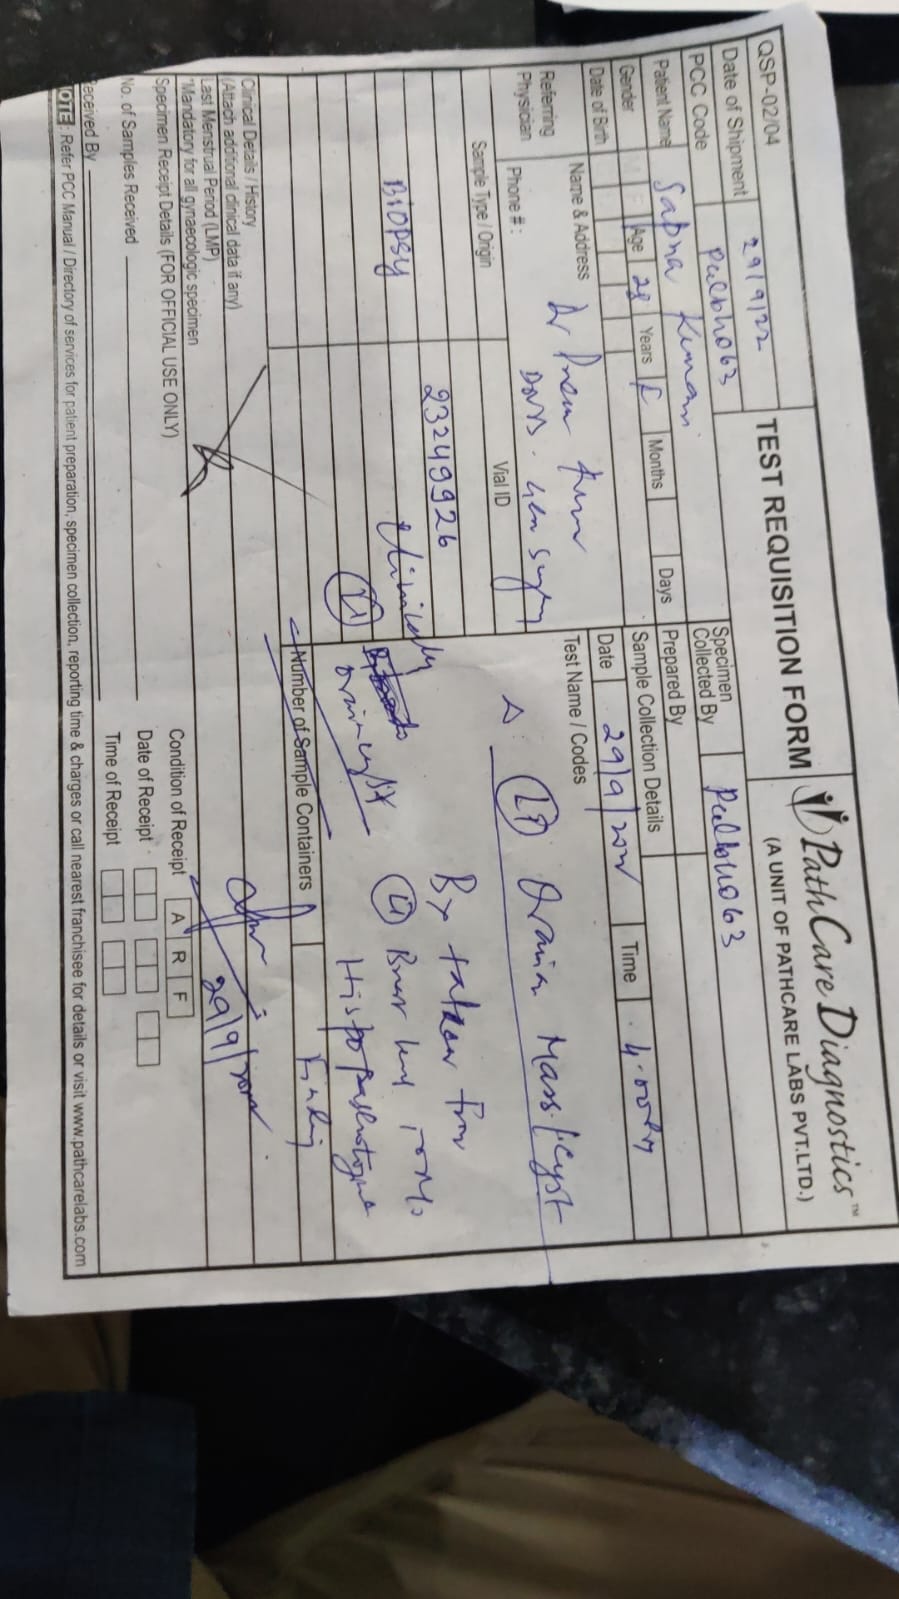 QSP-02/04
TEST REQUISITION FORM
PathCare Diagnostics™
(A UNIT OF PATHCARE LABS PVT.LTD.)
Date of Shipment 29/9/22
PCC Code
Specimen Collected By
Patient Name Sapna Kumari
Prepared By
Gender M F Age 28 Years F Months Days
Sample Collection Details
Date of Birth
Date 29/9/ Time 4.00
Referring Physician
Name & Address Dr
Phone # :
Test Name / Codes
Sample Type / Origin Vial ID
23249926
Biopsy Clinically
Ovarian Mass/Cyst
Bx taken from
Ovarian cyst
Number of Sample Containers
Clinical Details / History
(Attach additional clinical data if any)
Last Menstrual Period (LMP)
*Mandatory for all gynaecologic specimen
29/9/
Specimen Receipt Details (FOR OFFICIAL USE ONLY)
Condition of Receipt A R F
No. of Samples Received
Date of Receipt
Received By
Time of Receipt
NOTE : Refer PCC Manual / Directory of services for patient preparation, specimen collection, reporting time & charges or call nearest franchisee for details or visit www.pathcarelabs.com